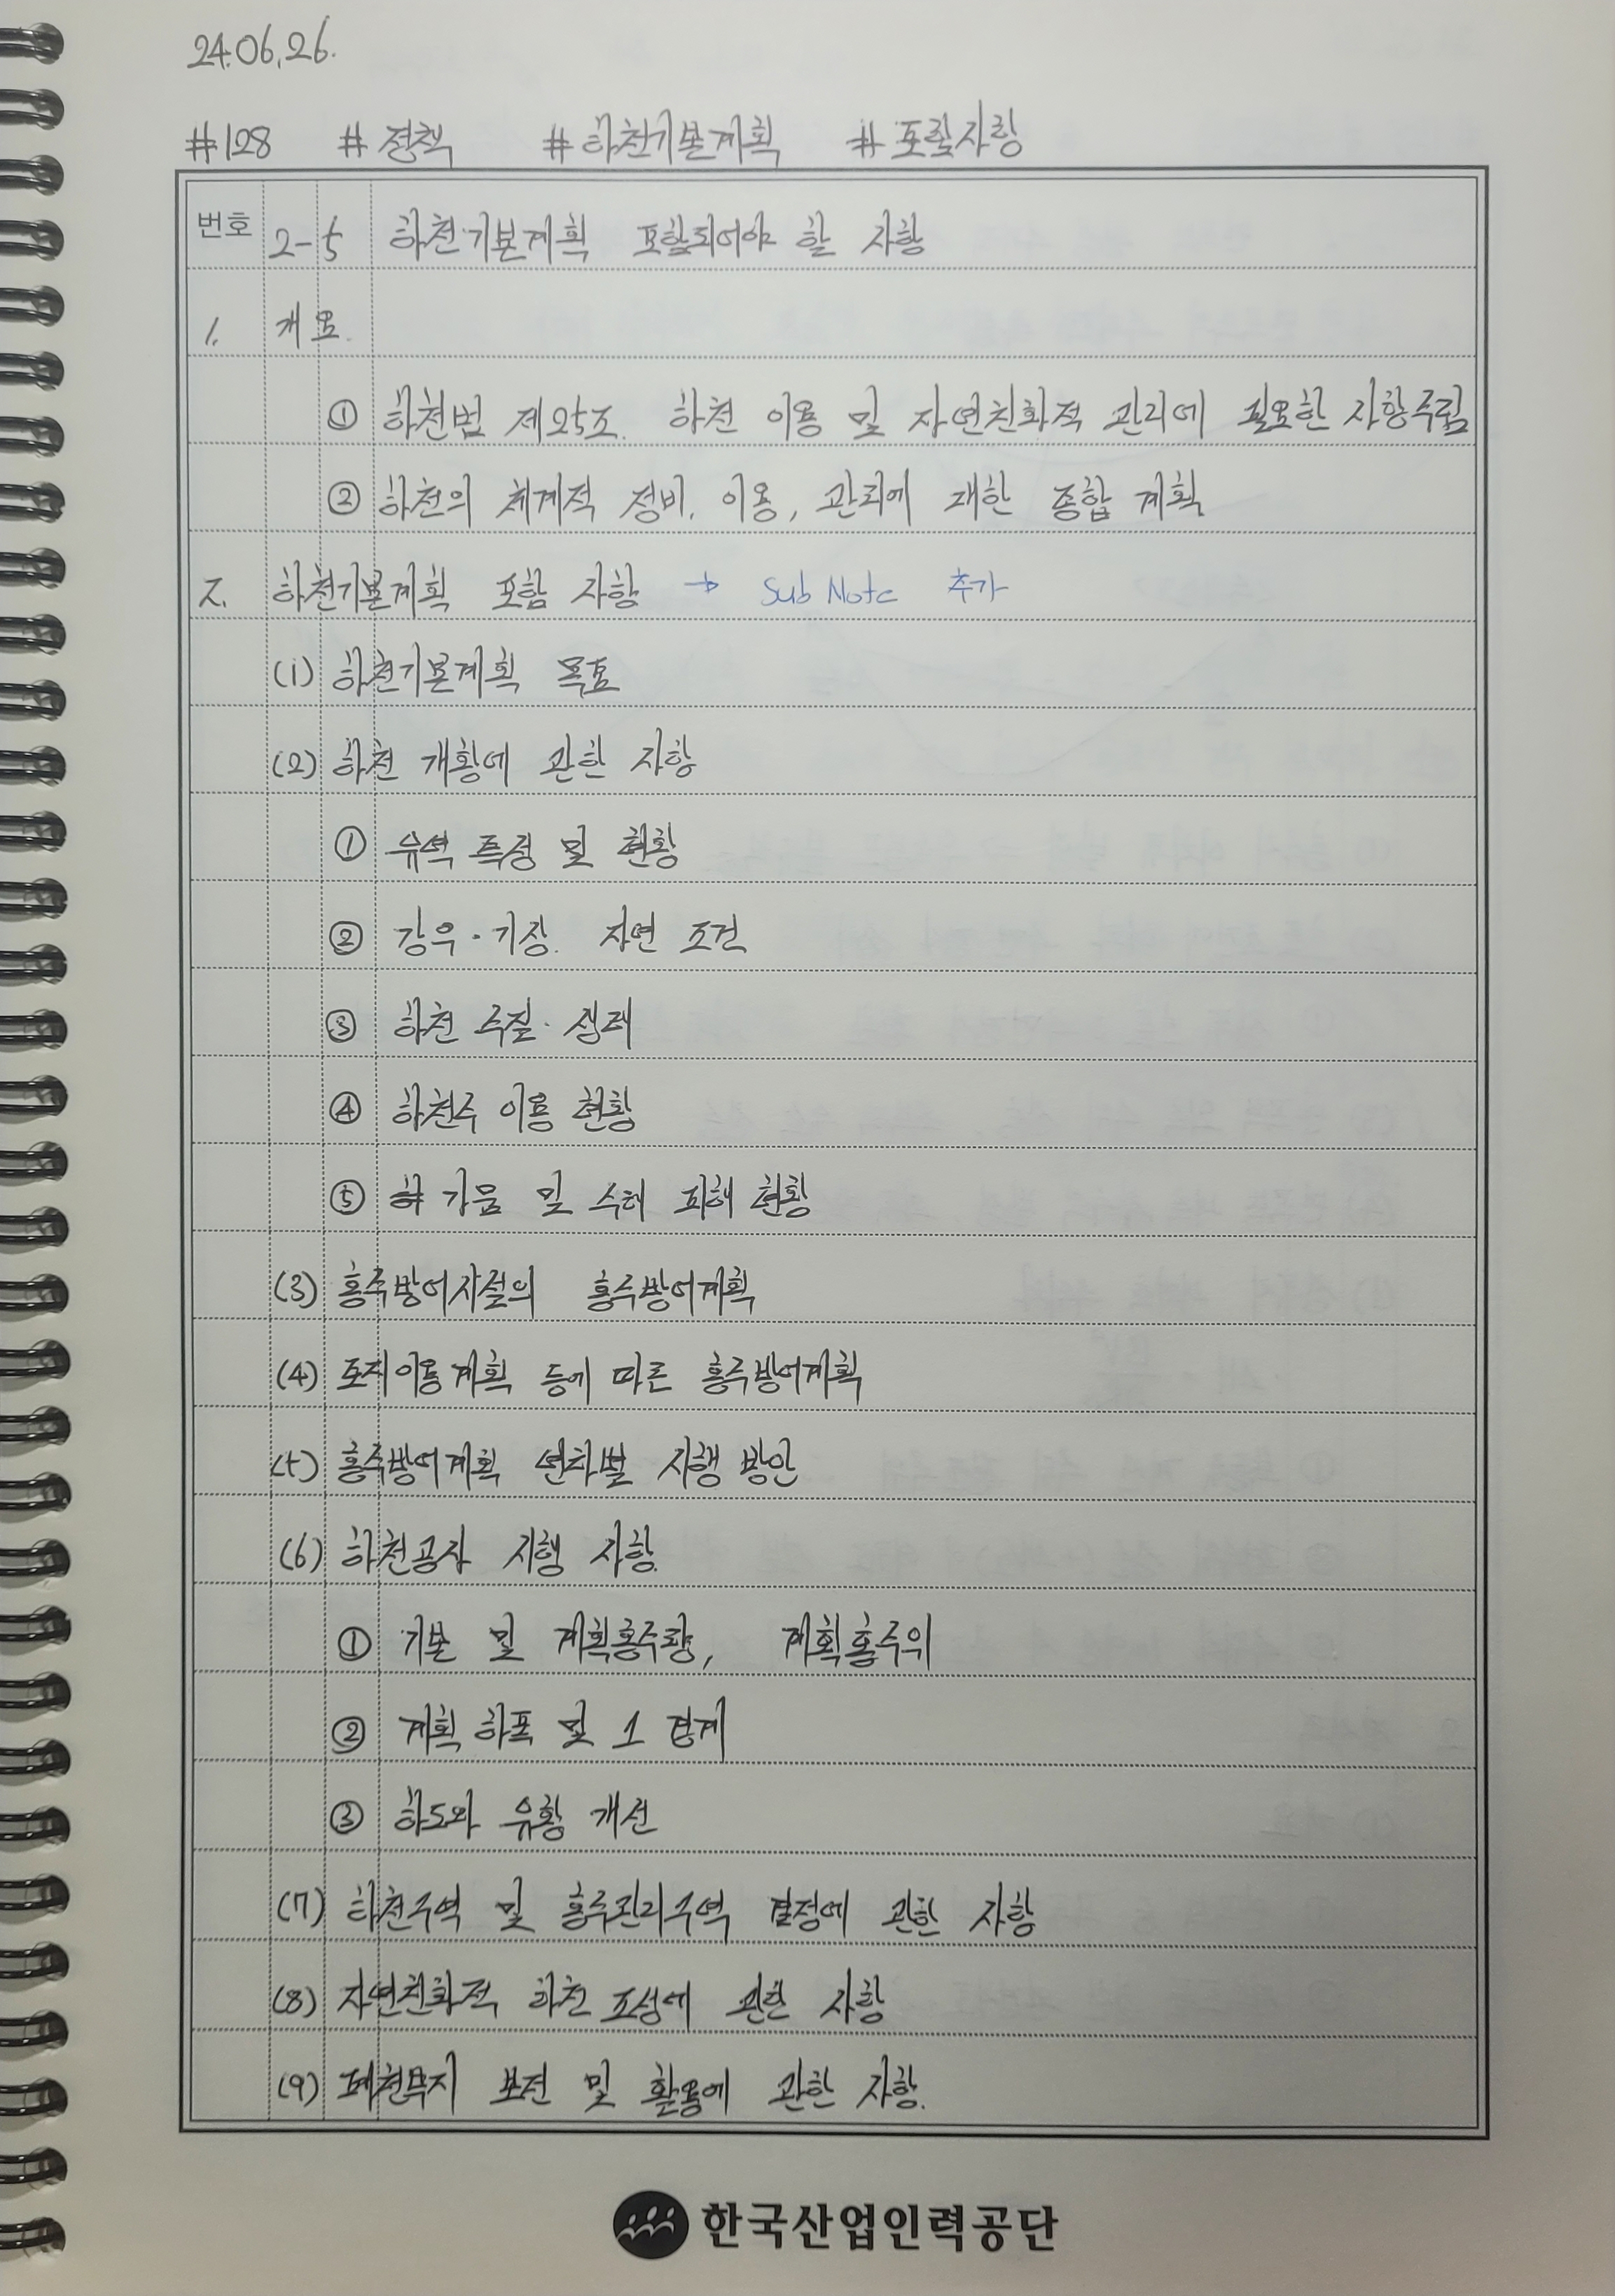 24.06.26.
#128 #정책 #하천기본계획 #포함사항
번호 2-5 하천기본계획 포함되어야 할 사항
1. 개요.
① 하천법 제25조. 하천 이용 및 자연친화적 관리에 필요한 사항수립
② 하천의 체계적 정비, 이용, 관리에 대한 종합 계획
2. 하천기본계획 포함 사항 → Sub Note 추가
(1) 하천기본계획 목표
(2) 하천 개황에 관한 사항
① 유역 특성 및 현황
② 강우·기상. 자연 조건
③ 하천 수질·생태
④ 하천수 이용 현황
⑤ 가뭄 및 수해 피해 현황
(3) 홍수방어시설의 홍수방어계획
(4) 토지이용계획 등에 따른 홍수방어계획
(5) 홍수방어계획 연차별 시행 방안
(6) 하천공사 시행 사항.
① 기본 및 계획홍수량, 계획홍수위
② 계획 하폭 및 그 경계
③ 하도와 유황 개선
(7) 하천구역 및 홍수관리구역 결정에 관한 사항
(8) 자연친화적 하천 조성에 관한 사항
(9) 폐천부지 보전 및 활용에 관한 사항.
한국산업인력공단